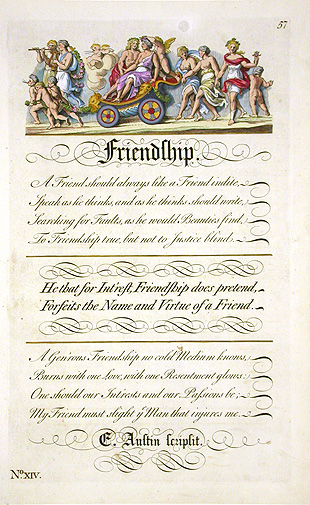 57
Friendship.
A Friend should always like a Friend indite,
Speak as he thinks, and as he thinks should write,
Searching for Faults, as he would Beauties find,
To Friendship true, but not to Justice blind.
He that for Int'rest, Friendship does pretend,
Forfeits the Name and Virtue of a Friend.
A Gen'rous Friendship no cold Medium knows,
Burns with one Love, with one Resentment glows:
One should our Int'rests and our Passions be;
My Friend must slight yͤ Man that injures me.
E. Austin scripsit.
No. XIV.